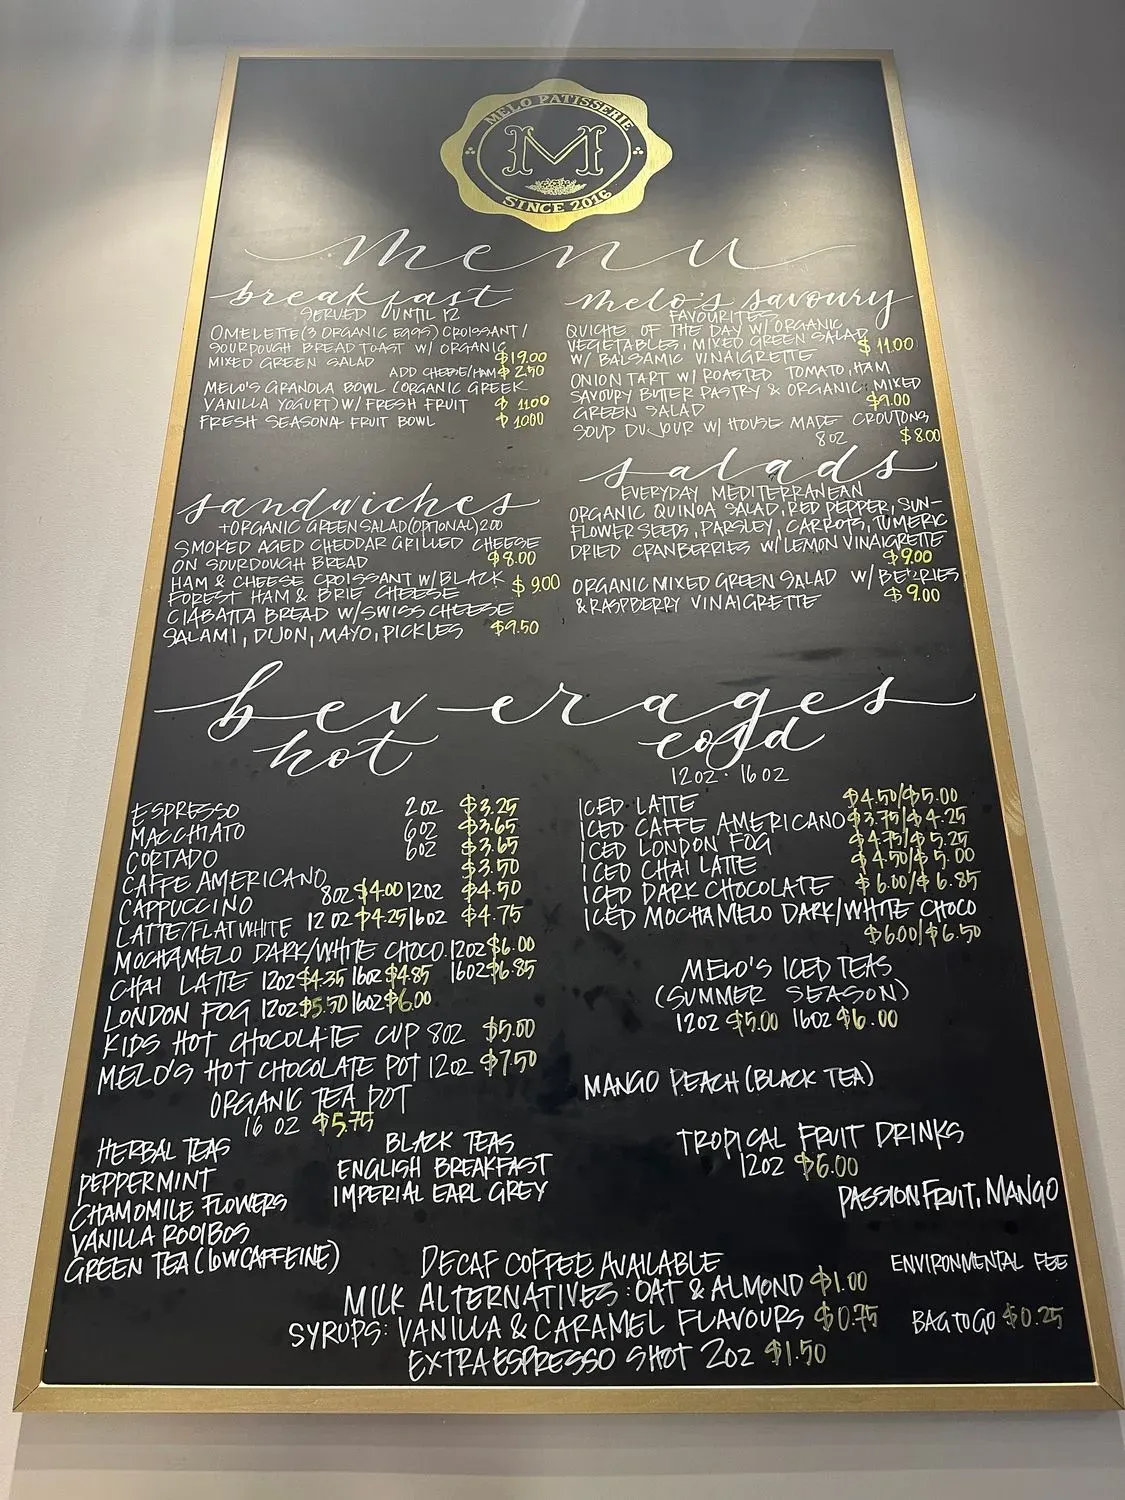 MELO PATISSERIE
M
SINCE 2016
menu
breakfast
SERVED UNTIL 12
OMELETTE (3 ORGANIC EGGS) CROISSANT /
SOURDOUGH BREAD TOAST W/ ORGANIC
MIXED GREEN SALAD $19.00
ADD CHEESE/HAM $2.50
MELO'S GRANOLA BOWL (ORGANIC GREEK
VANILLA YOGURT) W/ FRESH FRUIT $11.00
FRESH SEASONA FRUIT BOWL $10.00
melo's savoury
FAVOURITES
QUICHE OF THE DAY W/ ORGANIC
VEGETABLES, MIXED GREEN SALAD
W/ BALSAMIC VINAIGRETTE $11.00
ONION TART W/ ROASTED TOMATO, HAM
SAVOURY BUTTER PASTRY & ORGANIC MIXED
GREEN SALAD $9.00
SOUP DU JOUR W/ HOUSE MADE CROUTONS
8 OZ $8.00
sandwiches
+ORGANIC GREEN SALAD (OPTIONAL) 2.00
SMOKED AGED CHEDDAR GRILLED CHEESE
ON SOURDOUGH BREAD $8.00
HAM & CHEESE CROISSANT W/ BLACK
FOREST HAM & BRIE CHEESE $9.00
CIABATTA BREAD W/ SWISS CHEESE
SALAMI, DIJON, MAYO, PICKLES $9.50
salads
EVERYDAY MEDITERRANEAN
ORGANIC QUINOA SALAD, RED PEPPER, SUN-
FLOWER SEEDS, PARSLEY, CARROTS, TUMERIC
DRIED CRANBERRIES W/ LEMON VINAIGRETTE
$9.00
ORGANIC MIXED GREEN SALAD W/ BERRIES
& RASPBERRY VINAIGRETTE $9.00
beverages
hot
ESPRESSO 2 OZ $3.25
MACCHIATO 6OZ $3.65
CORTADO 6OZ $3.65
CAFFE AMERICANO $3.50
CAPPUCCINO 8OZ $4.00 12OZ $4.50
LATTE/FLAT WHITE 12 OZ $4.25 16OZ $4.75
MOCHAMELO DARK/WHITE CHOCO. 12OZ $6.00
16OZ $6.85
CHAI LATTE 12OZ $4.35 16OZ $4.85
LONDON FOG 12OZ $5.50 16OZ $6.00
KIDS HOT CHOCOLATE CUP 8OZ $5.00
MELO'S HOT CHOCOLATE POT 12OZ $7.50
ORGANIC TEA POT
16 OZ $5.75
HERBAL TEAS
PEPPERMINT
CHAMOMILE FLOWERS
VANILLA ROOIBOS
GREEN TEA (LOW CAFFEINE)
BLACK TEAS
ENGLISH BREAKFAST
IMPERIAL EARL GREY
cold
12OZ · 16OZ
ICED LATTE $4.50/$5.00
ICED CAFFE AMERICANO $3.75/$4.25
ICED LONDON FOG $4.75/$5.25
ICED CHAI LATTE $4.50/$5.00
ICED DARK CHOCOLATE $6.00/$6.85
ICED MOCHAMELO DARK/WHITE CHOCO
$6.00/$6.50
MELO'S ICED TEAS
(SUMMER SEASON)
12OZ $5.00 16OZ $6.00
MANGO PEACH (BLACK TEA)
TROPICAL FRUIT DRINKS
12OZ $6.00
PASSION FRUIT, MANGO
DECAF COFFEE AVAILABLE
MILK ALTERNATIVES: OAT & ALMOND $1.00
SYRUPS: VANILLA & CARAMEL FLAVOURS $0.75
EXTRA ESPRESSO SHOT 2OZ $1.50
ENVIRONMENTAL FEE
BAG TO GO $0.25